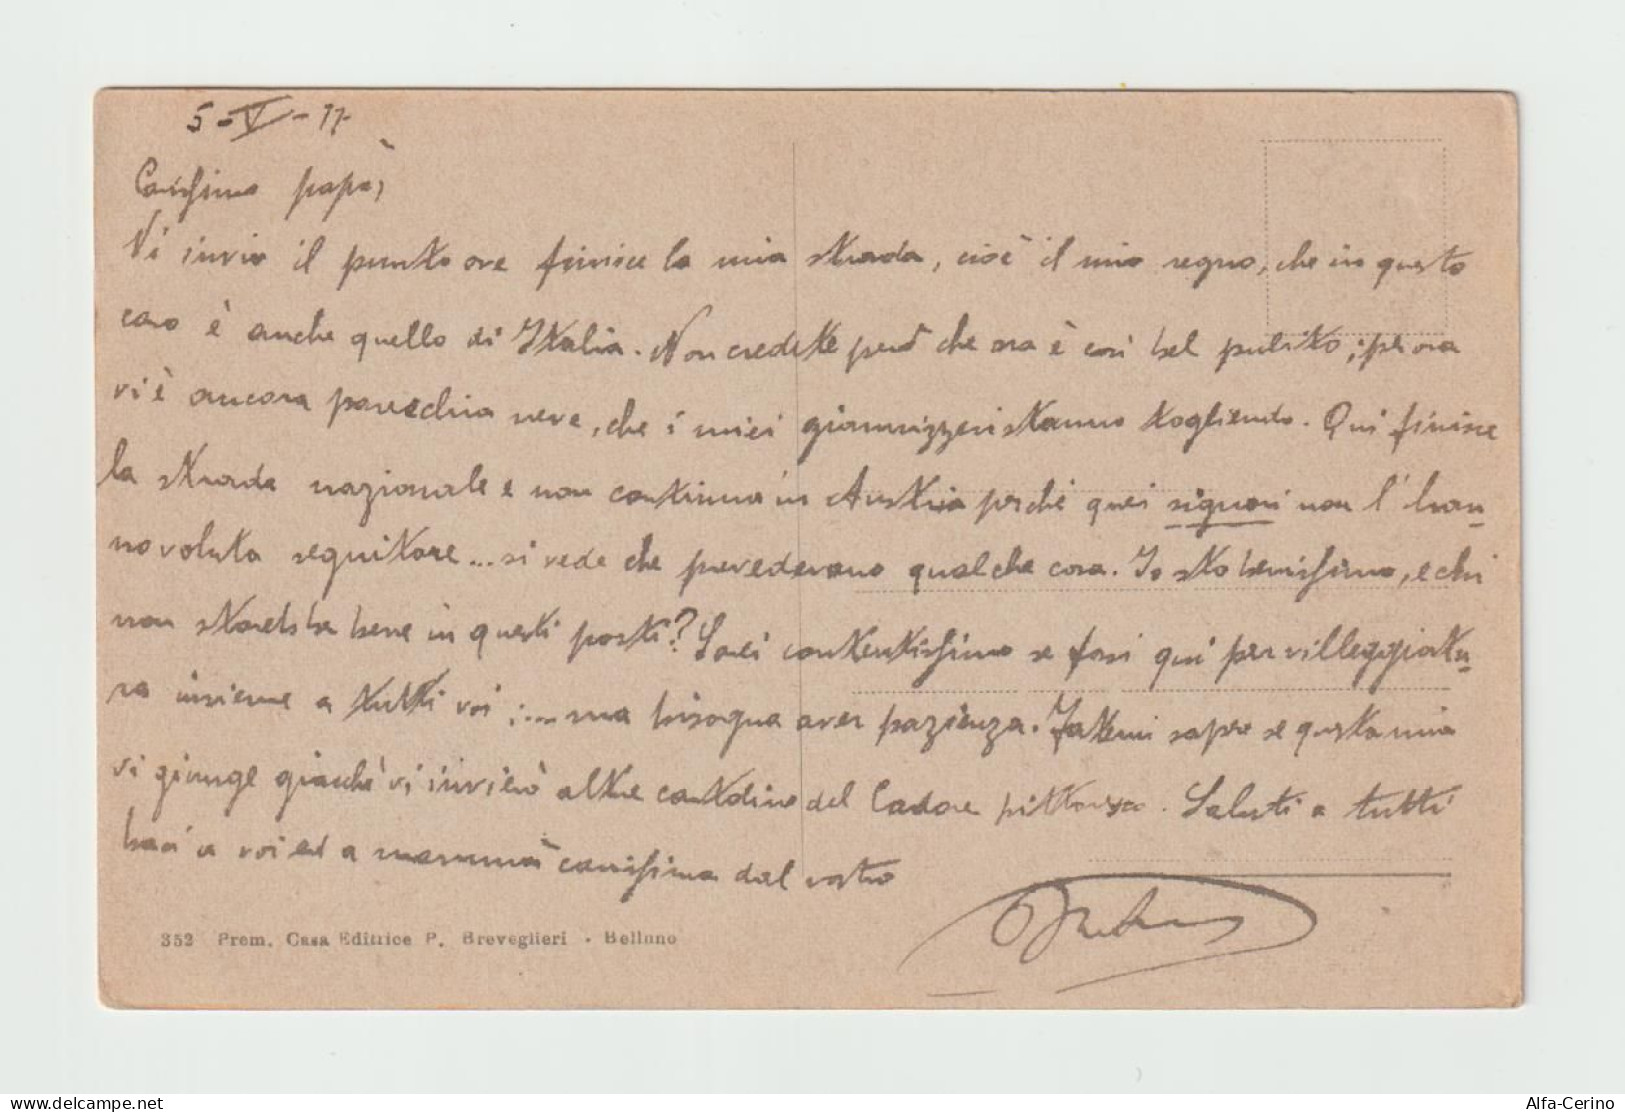 5-V-17
Carissimo papà,
Vi invio il punto ove finisce la mia strada, cioè il mio regno, che in questo
caso è anche quello di Italia. Non credete però che ora è così bel pulito; per ora
vi è ancora parecchia neve, che i miei giannizzeri stanno togliendo. Qui finisce
la strada nazionale e non continua in Austria perché quei signori non l'han
no voluta seguitare... si vede che prevedevano qualche cosa. Io sto benissimo, e chi
non starebbe bene in questi posti? Sarei contentissimo se fossi qui per villeggiatu
ra insieme a tutti voi;.... ma bisogna aver pazienza. Fatemi sapere se questa mia
vi giunge giacché vi invierò altre cartoline del Cadore pittoresco. Saluti a tutti
baci a voi ed a mammà carissima dal vostro
352 Prem. Casa Editrice P. Breveglieri - Belluno
Alfa-Cerino
www.delcampe.net